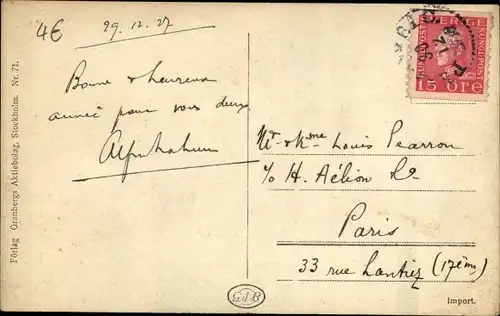 4€
29.12.27
Bonne & heureuse
année pour vous deux
Mr & Mme Louis Pearron
c/o H. Aélion
Paris
33 rue Lantiez (17ème)
SVERIGE
15 ÖRE
Förlag Granbergs Aktiebolag, Stockholm. Nr. 71.
GAB
Import.